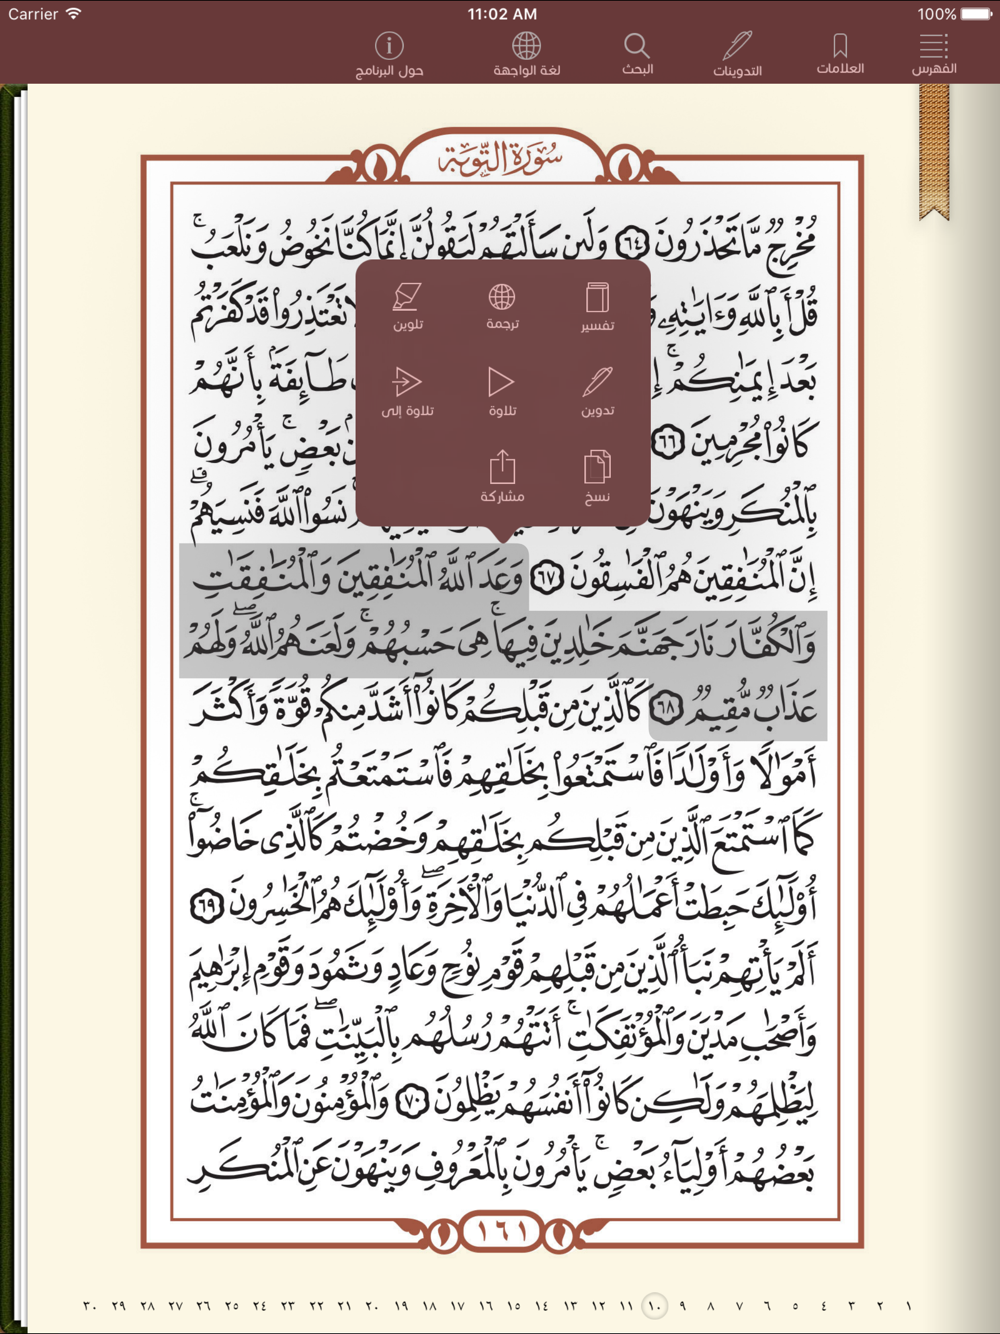 Carrier 11:02 AM 100%
الفهرس العلامات التدوينات البحث لغة الواجهة حول البرنامج
سُورَةُ التَّوْبَةِ
مُخْرِجٌ مَّا تَحْذَرُونَ ٦٤ وَلَئِن سَأَلْتَهُمْ لَيَقُولُنَّ إِنَّمَا كُنَّا نَخُوضُ وَنَلْعَبُ ۚ
قُلْ أَبِاللَّهِ وَءَايَـٰتِهِۦ لَا تَعْتَذِرُوا۟ قَدْ كَفَرْتُم
بَعْدَ إِيمَـٰنِكُمْ ۚ طَآئِفَةًۢ بِأَنَّهُمْ
كَانُوا۟ مُجْرِمِينَ ٦٦ بَعْضٍ ۚ يَأْمُرُونَ
بِٱلْمُنكَرِ وَيَنْهَوْنَ نَسُوا۟ ٱللَّهَ فَنَسِيَهُمْ ۗ
إِنَّ ٱلْمُنَـٰفِقِينَ هُمُ ٱلْفَـٰسِقُونَ ٦٧ وَعَدَ ٱللَّهُ ٱلْمُنَـٰفِقِينَ وَٱلْمُنَـٰفِقَـٰتِ
وَٱلْكُفَّارَ نَارَ جَهَنَّمَ خَـٰلِدِينَ فِيهَا ۚ هِىَ حَسْبُهُمْ ۚ وَلَعَنَهُمُ ٱللَّهُ ۖ وَلَهُمْ
عَذَابٌ مُّقِيمٌ ٦٨ كَٱلَّذِينَ مِن قَبْلِكُمْ كَانُوٓا۟ أَشَدَّ مِنكُمْ قُوَّةً وَأَكْثَرَ
أَمْوَٰلًا وَأَوْلَـٰدًا فَٱسْتَمْتَعُوا۟ بِخَلَـٰقِهِمْ فَٱسْتَمْتَعْتُم بِخَلَـٰقِكُمْ
كَمَا ٱسْتَمْتَعَ ٱلَّذِينَ مِن قَبْلِكُم بِخَلَـٰقِهِمْ وَخُضْتُمْ كَٱلَّذِى خَاضُوٓا۟ ۚ
أُو۟لَـٰٓئِكَ حَبِطَتْ أَعْمَـٰلُهُمْ فِى ٱلدُّنْيَا وَٱلْـَٔاخِرَةِ ۖ وَأُو۟لَـٰٓئِكَ هُمُ ٱلْخَـٰسِرُونَ ٦٩
أَلَمْ يَأْتِهِمْ نَبَأُ ٱلَّذِينَ مِن قَبْلِهِمْ قَوْمِ نُوحٍ وَعَادٍ وَثَمُودَ وَقَوْمِ إِبْرَٰهِيمَ
وَأَصْحَـٰبِ مَدْيَنَ وَٱلْمُؤْتَفِكَـٰتِ ۚ أَتَتْهُمْ رُسُلُهُم بِٱلْبَيِّنَـٰتِ ۖ فَمَا كَانَ ٱللَّهُ
لِيَظْلِمَهُمْ وَلَـٰكِن كَانُوٓا۟ أَنفُسَهُمْ يَظْلِمُونَ ٧٠ وَٱلْمُؤْمِنُونَ وَٱلْمُؤْمِنَـٰتُ
بَعْضُهُمْ أَوْلِيَآءُ بَعْضٍ ۚ يَأْمُرُونَ بِٱلْمَعْرُوفِ وَيَنْهَوْنَ عَنِ ٱلْمُنكَرِ
تفسير ترجمة تلوين
تدوين تلاوة تلاوة إلى
نسخ مشاركة
١٦١
١ ٢ ٣ ٤ ٥ ٦ ٧ ٨ ٩ ١٠ ١١ ١٢ ١٣ ١٤ ١٥ ١٦ ١٧ ١٨ ١٩ ٢٠ ٢١ ٢٢ ٢٣ ٢٤ ٢٥ ٢٦ ٢٧ ٢٨ ٢٩ ٣٠